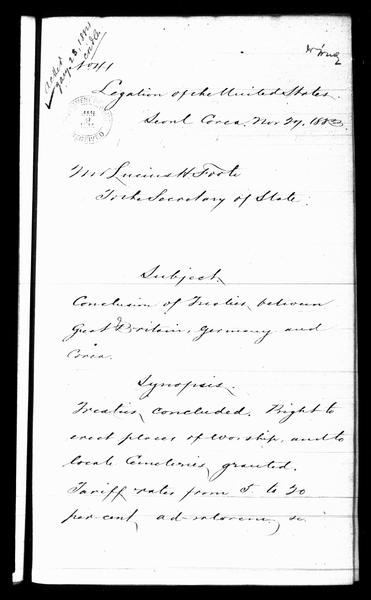 Ackd
Jany. 23, 1884
No 41
Legation of the United States
Seoul Corea. Nov 27. 1883.
Mr Lucius H Foote
To the Secretary of State.
Subject.
Conclusion of Treaties, between
Great Britain, Germany and
Corea.
Synopsis.
Treaties concluded. Right to
erect places of worship, and to
locate Cemeteries, granted.
Tariff rates from 5. to 20
per-cent, ad-valorem, &c